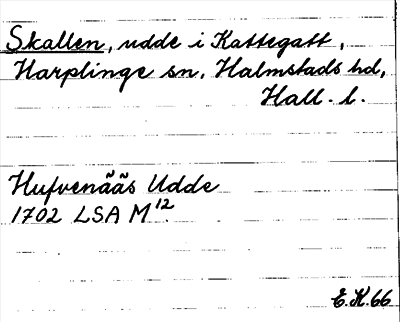 Skallen, udde i Kattegatt,
Harplinge sn, Halmstads hd,
Hall. l.
Hufvenääs Udde
1702 LSA M 12.
E.K.66